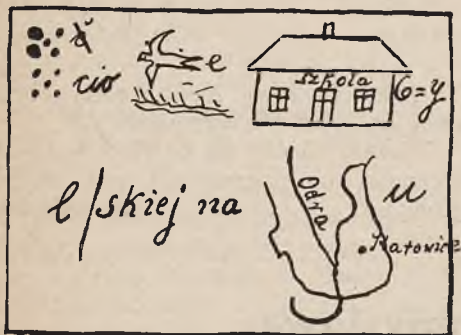 cio
e
szkola
6=y
l/skiej na
Odra
u
Katowice